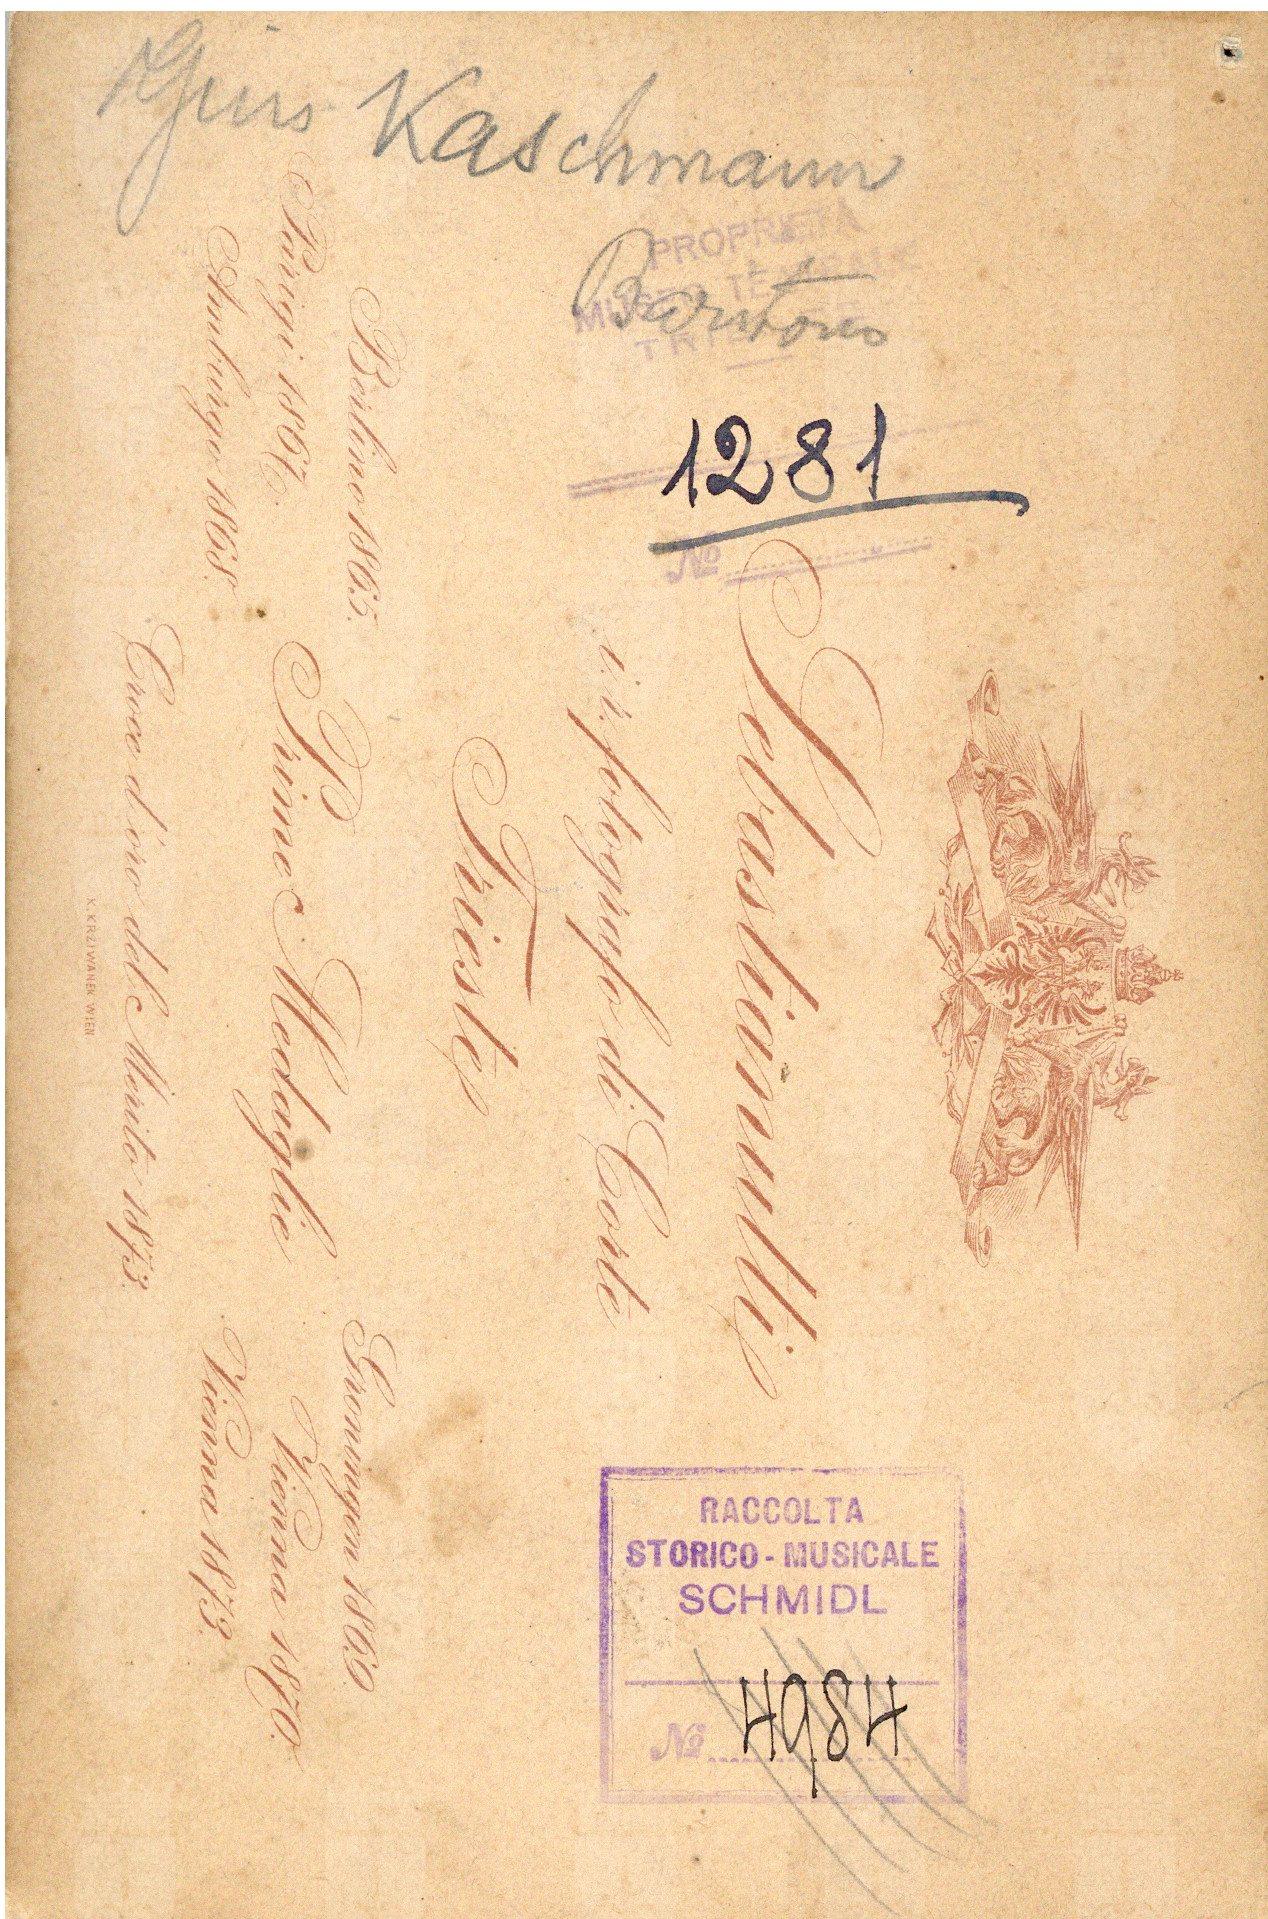 Kaschmann
Baritono
PROPRIETÀ
MUSEO TEATRALE
TRIESTE
1281
No
Sebastianutti
i. r. fotografo di Corte
Trieste
Berlino 1865.
Parigi 1867.
Amburgo 1868.
Prime Medaglie
Groningen 1869.
Vienna 1870.
Vienna 1873.
Croce d'oro del Merito 1873.
K. KRZIWANEK WIEN
RACCOLTA
STORICO - MUSICALE
SCHMIDL
No 4984